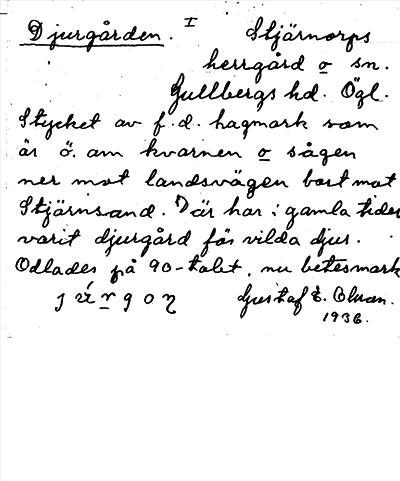 Djurgården. I Stjärnorps
herrgård o sn.
Gullbergs hd. Ögl.
Stycket av f.d. hagmark som
är ö. om kvarnen o sågen
ner mot landsvägen bort mot
Stjärnsand. Där har i gamla tider
varit djurgård för vilda djur.
Odlades på 90-talet, nu betesmark
Gustaf E. Olson.
1936.